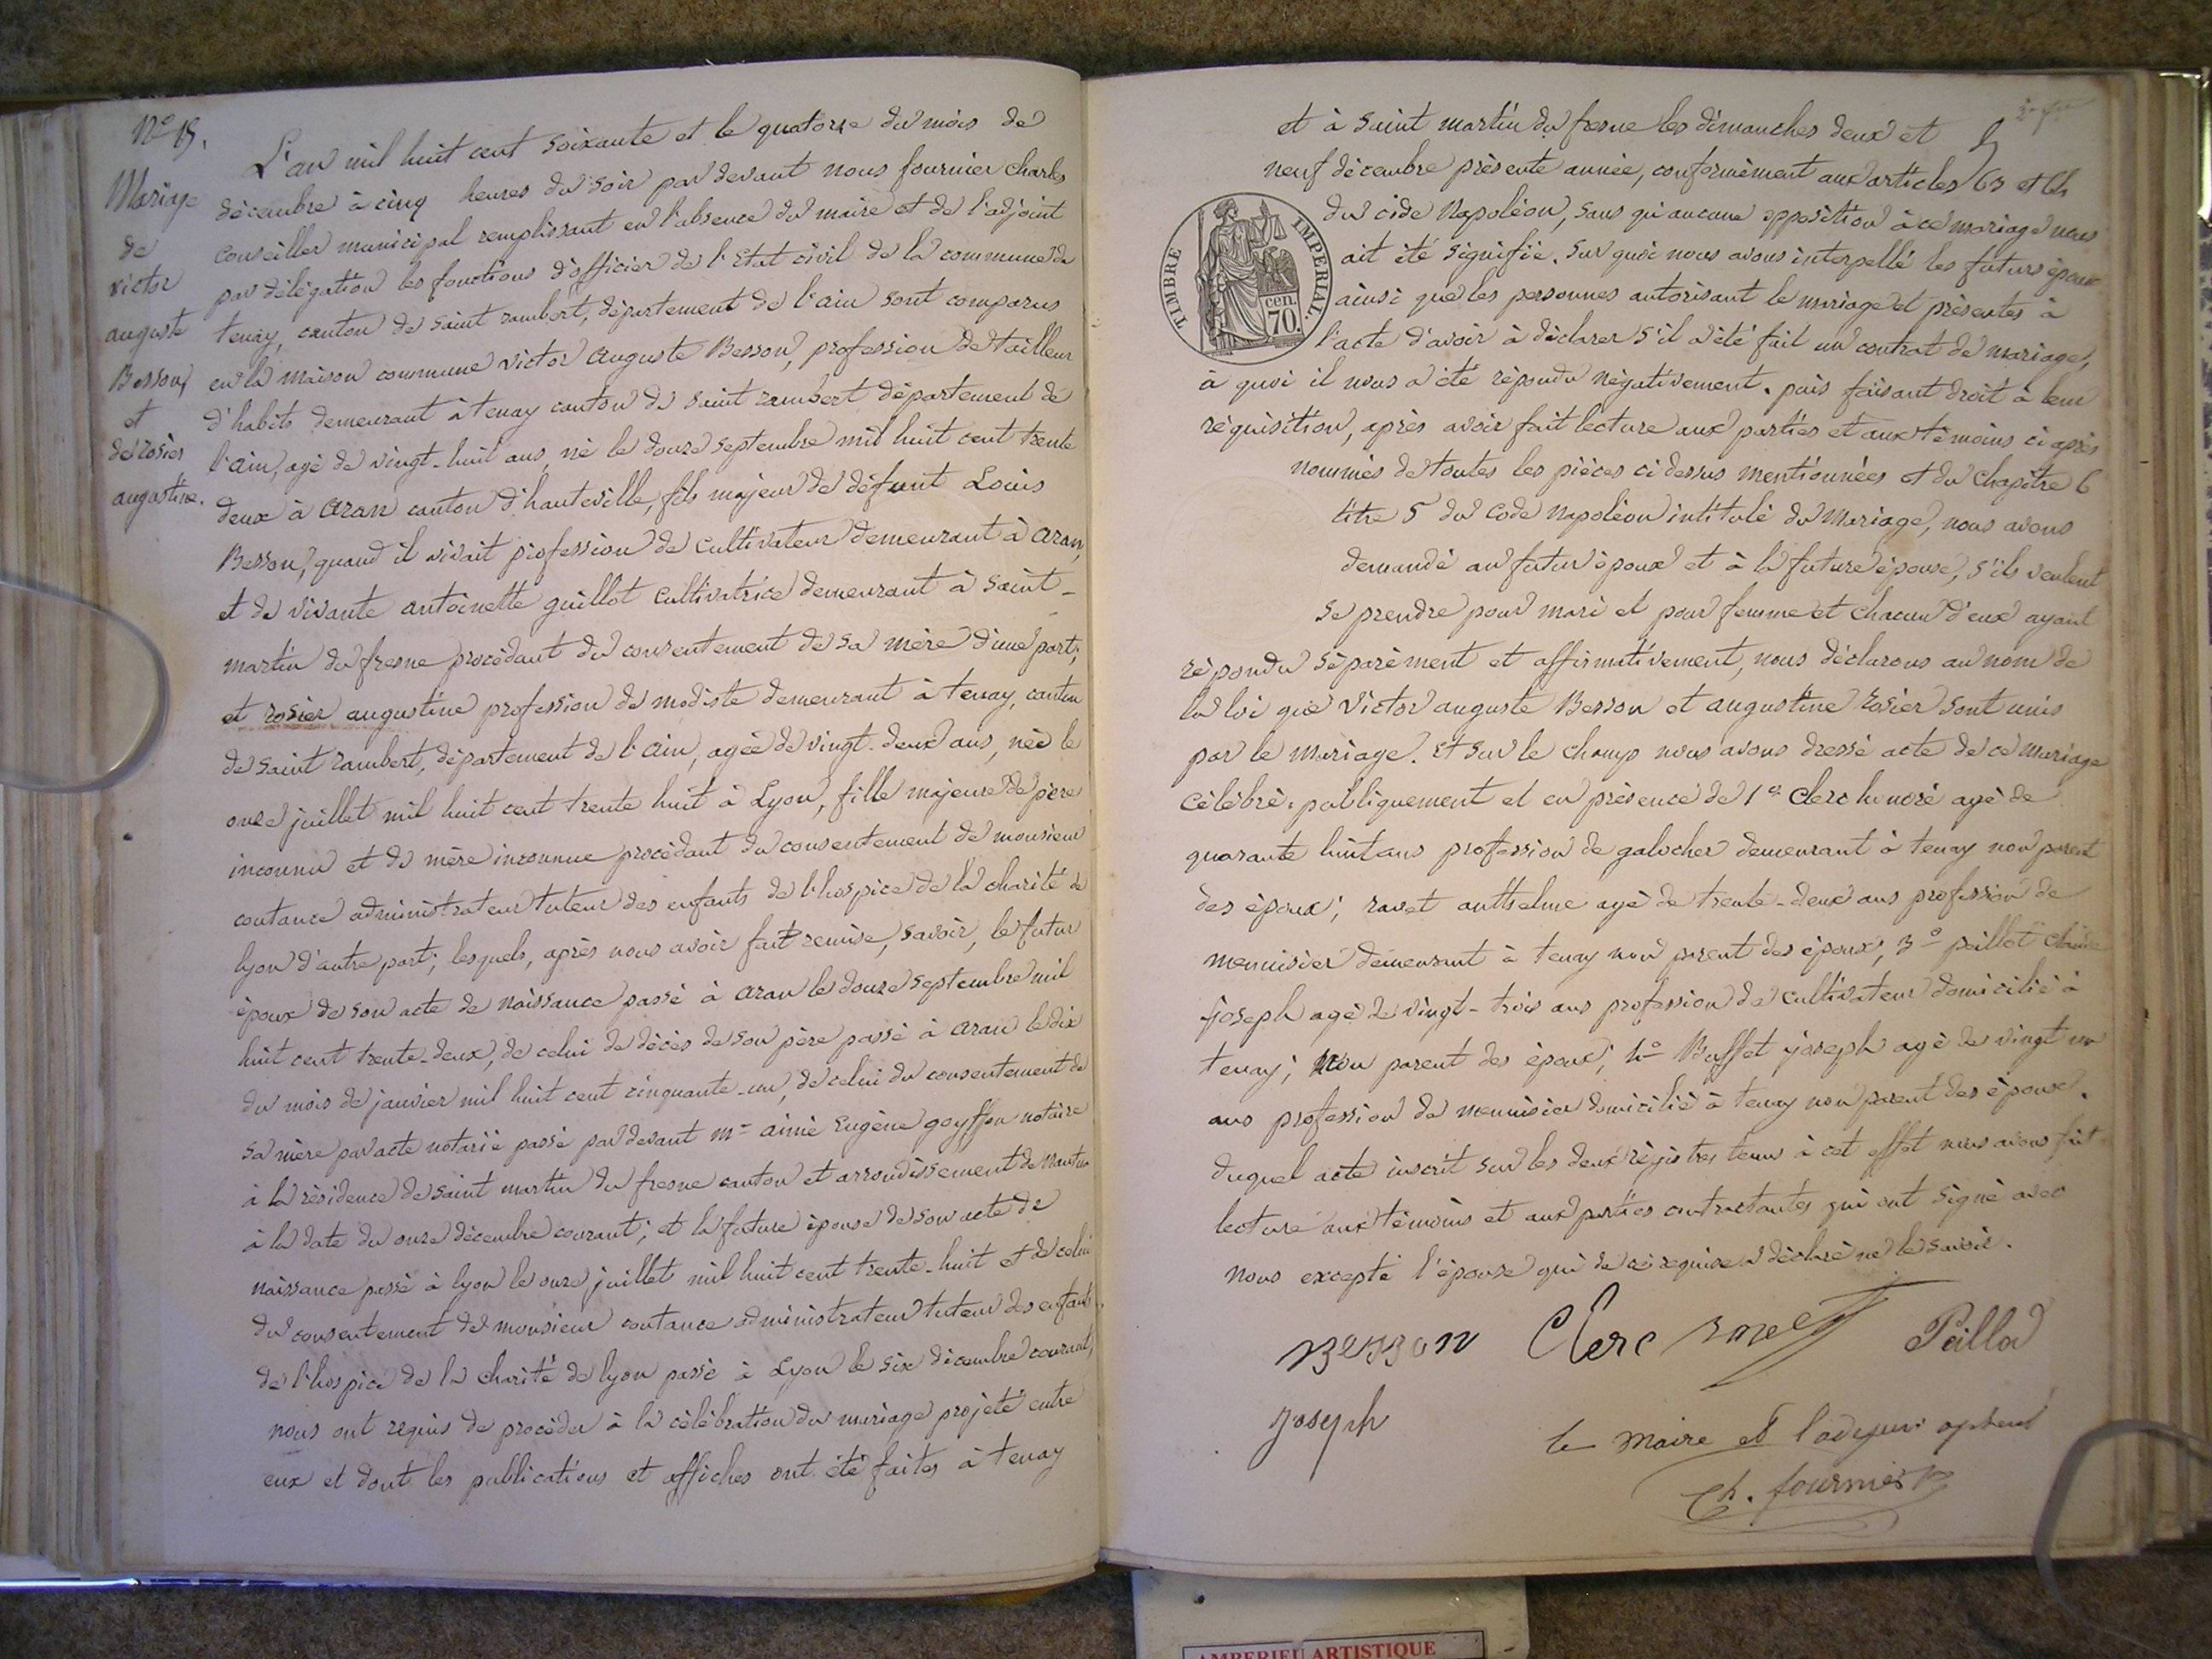 N° 15.
Mariage
de
victor
auguste
Besson
et
de rosier
augustine.
L'an mil huit cent soixante et le quatorze du mois de
décembre à cinq heures du soir par devant nous fournier charles
conseiller municipal remplissant en l'absence du maire et de l'adjoint
par délégation les fonctions d'officier de l'Etat civil de la commune de
tenay, canton de saint rambert, département de l'ain sont comparus
en la maison commune victor auguste Besson, profession de tailleur
d'habits demeurant à tenay canton de saint rambert département de
l'ain, agé de vingt-huit ans, né le douze septembre mil huit cent trente
deux à aran canton d'hauteville, fils majeur de défunt Louis
Besson, quand il vivait profession de cultivateur demeurant à aran,
et de vivante antoinette guillot cultivatrice demeurant à saint-
martin du fresne procédant du consentement de sa mère d'une part;
et rosier augustine profession de modiste demeurant à tenay, canton
de saint rambert, département de l'ain, agée de vingt-deux ans, née le
onze juillet mil huit cent trente huit à Lyon, fille majeure de père
inconnu et de mère inconnue procédant du consentement de monsieur
coutance administrateur tuteur des enfants de l'hospice de la charité de
lyon d'autre part; lesquels, après nous avoir fait remise, savoir, le futur
époux de son acte de naissance passé à aran le douze septembre mil
huit cent trente-deux, de celui de décès de son père passé à aran le dix
du mois de janvier mil huit cent cinquante-un, de celui du consentement de
sa mère par acte notarié passé par devant me aimé Eugène goyffon notaire
à la résidence de saint martin du fresne canton et arrondissement de nantua
à la date du onze décembre courant; et la future épouse de son acte de
naissance passé à lyon le onze juillet mil huit cent trente-huit et de celui
du consentement de monsieur coutance administrateur tuteur des enfants
de l'hospice de la charité de lyon passé à Lyon le six décembre courant,
nous ont requis de procéder à la célébration du mariage projeté entre
eux et dont les publications et affiches ont été faites à tenay
et à saint martin du fresne les dimanches deux et
neuf décembre présente année, conformément aux articles 63 et 64
du code Napoléon, sans qu'aucune opposition à ce mariage nous
ait été signifiée. sur quoi nous avons interpellé les futurs époux
ainsi que les personnes autorisant le mariage et présentes à
l'acte d'avoir à déclarer s'il a été fait un contrat de mariage,
à quoi il nous a été répondu négativement. puis faisant droit à leur
réquisition, après avoir fait lecture aux parties et aux témoins ci après
nommés de toutes les pièces ci dessus mentionnées et du chapitre 6
titre 5 du code napoléon intitulé du Mariage, nous avons
demandé au futur époux et à la future épouse, s'ils veulent
se prendre pour mari et pour femme et chacun d'eux ayant
répondu séparément et affirmativement, nous déclarons au nom de
la loi que Victor auguste Besson et augustine rosier sont unis
par le mariage. Et sur le champ nous avons dressé acte de ce mariage
célébré publiquement et en présence de 1° Clerc honoré agé de
quarante huit ans profession de galocher demeurant à tenay non parent
des époux; ravet anthelme agé de trente-deux ans profession de
menuisier demeurant à tenay non parent des époux; 3° peillot claude
joseph agé de vingt-trois ans profession de cultivateur domicilié à
tenay; non parent des époux; 4° Buffet joseph agé de vingt un
ans profession de menuisier domicilié à tenay non parent des époux.
duquel acte inscrit sur les deux régistres tenus à cet effet nous avons fait
lecture aux témoins et aux parties contractantes qui ont signé avec
nous excepté l'épouse qui de ce requise a déclaré ne le savoir.
TIMBRE IMPERIAL.
cen.
70.
Besson Clerc ravet Peillod
Joseph
le Maire et l'adjoint absent
Ch. fournier
AMBERIEU ARTISTIQUE